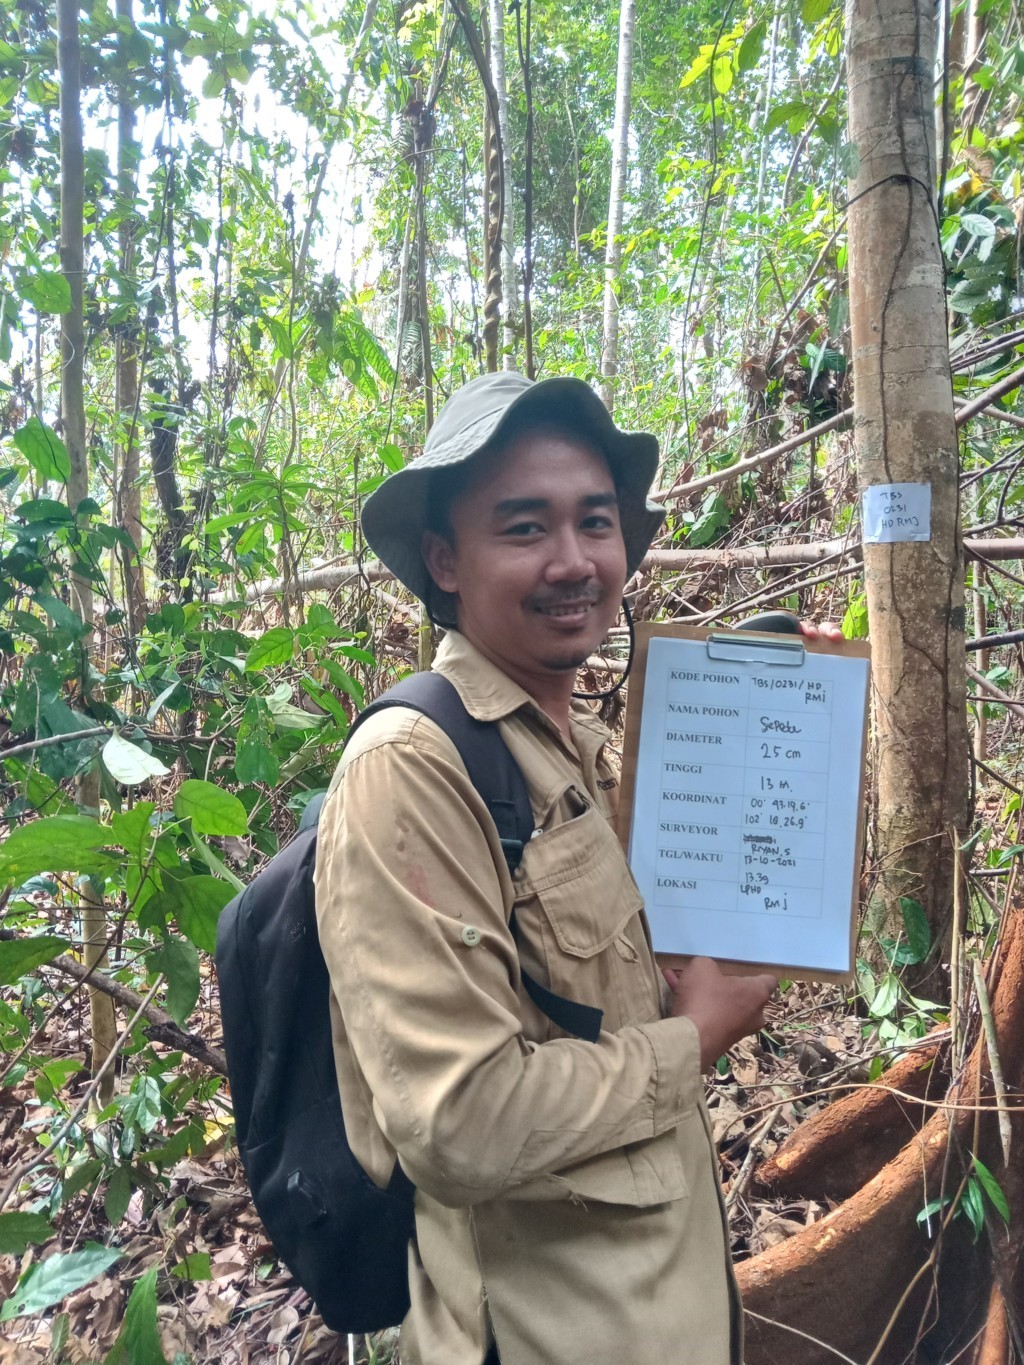 TBS
0231
HD RMJ
KODE POHON TBS/0231/HD
RMj
NAMA POHON Sepetu
DIAMETER 25 cm
TINGGI 13 m.
KOORDINAT 00° 43.19,6'
102° 18.26.9'
SURVEYOR RIYAN.S
TGL/WAKTU 13-10-2021
13.39
LOKASI LPHD
RMj